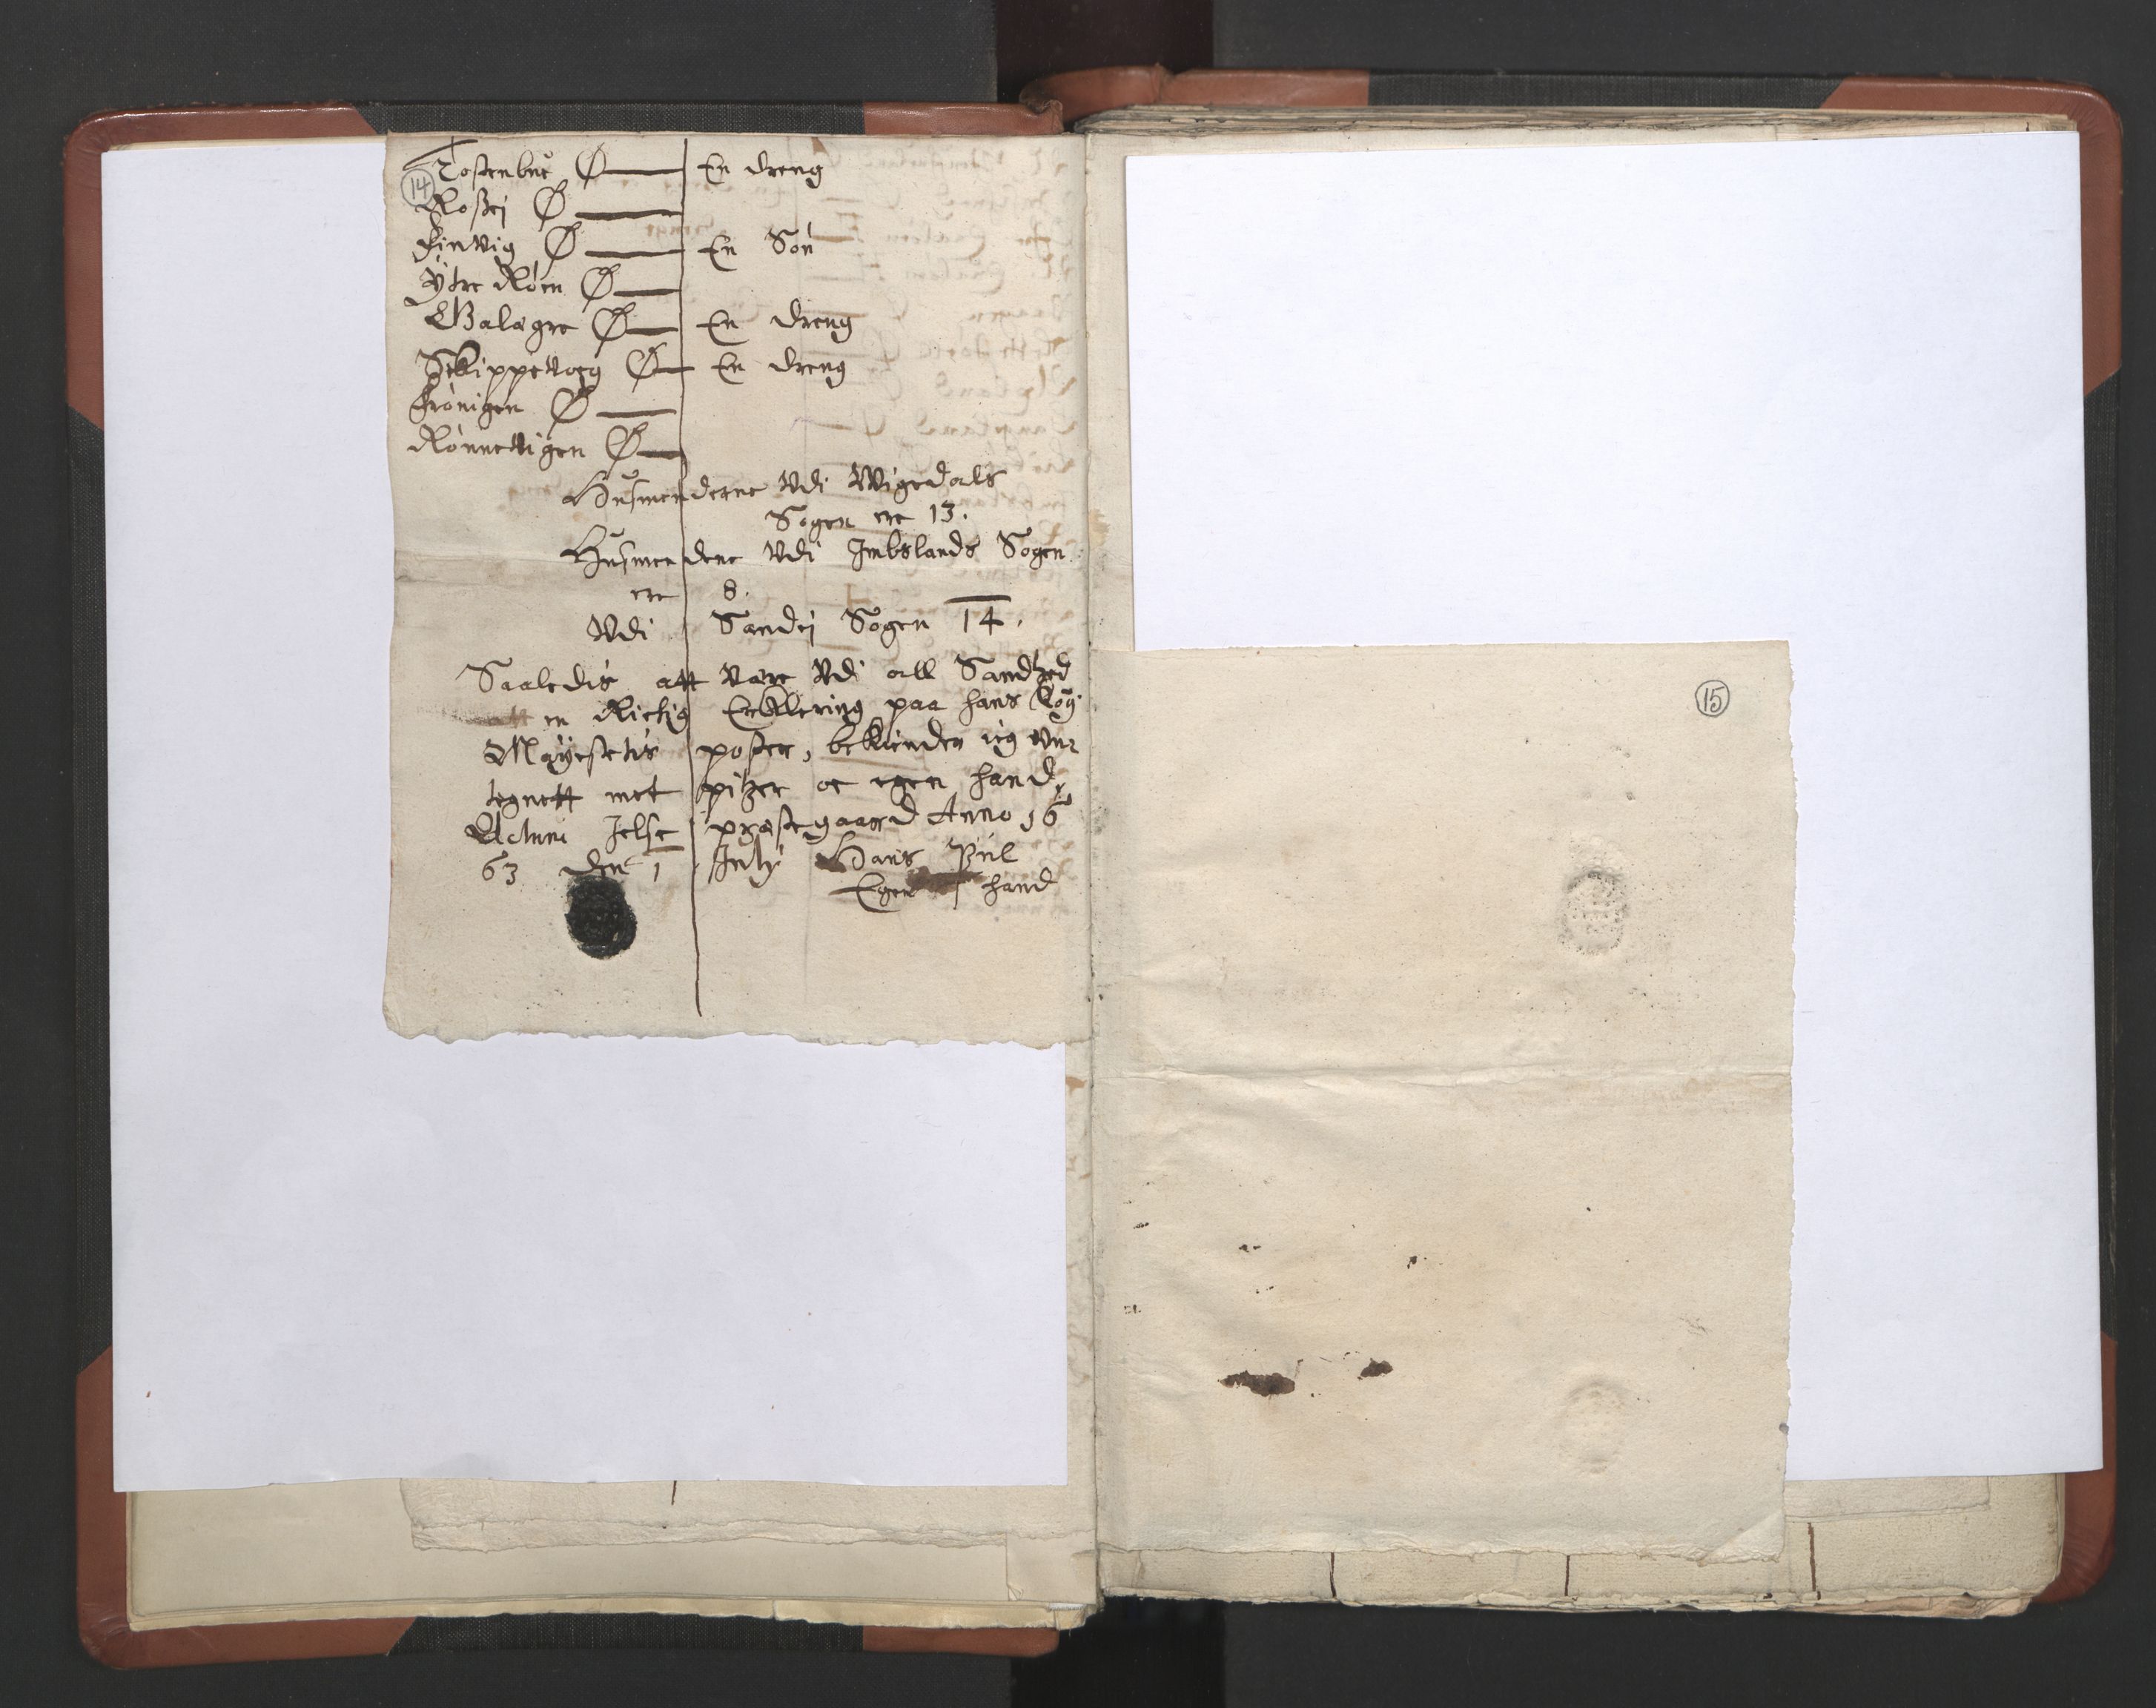 Tostenbue Ø — En dreng
14
Roßej Ø —
Finvig Ø — En Søn
Ÿtre Røen Ø —
Walagre Ø — En dreng
Skippevog Ø — En dreng
Grønigen Ø —
Rønnevigen Ø —
Husmenderne Vdi Wigedals
Sogen ere 13.
Husmendene Vdi Imbslands Sogen
ere 8.
Vdi Sandej Sogen 14.
Saaledis att være Vdi all Sandhed
en Rictig Erklering paa hans Køÿ
Maÿestetis poster, bekiender ieg vnr
tegnett met pitzer oc egen hand,
Actum Jelse præstegaard Anno 16
63 den 1 Julÿ Hans
Egen hand
15